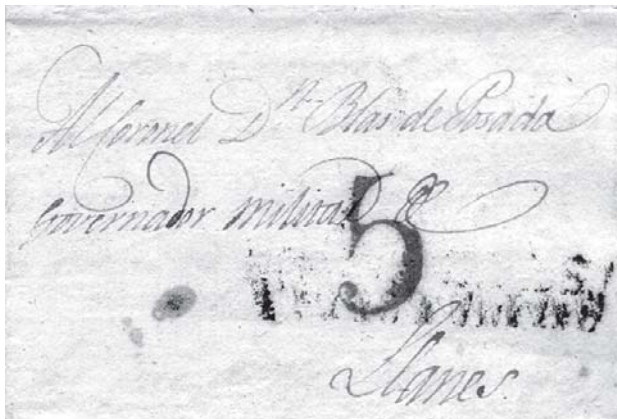 Al Coronel Dn. Blas de Posada
Governador militar &
5
Llanes.